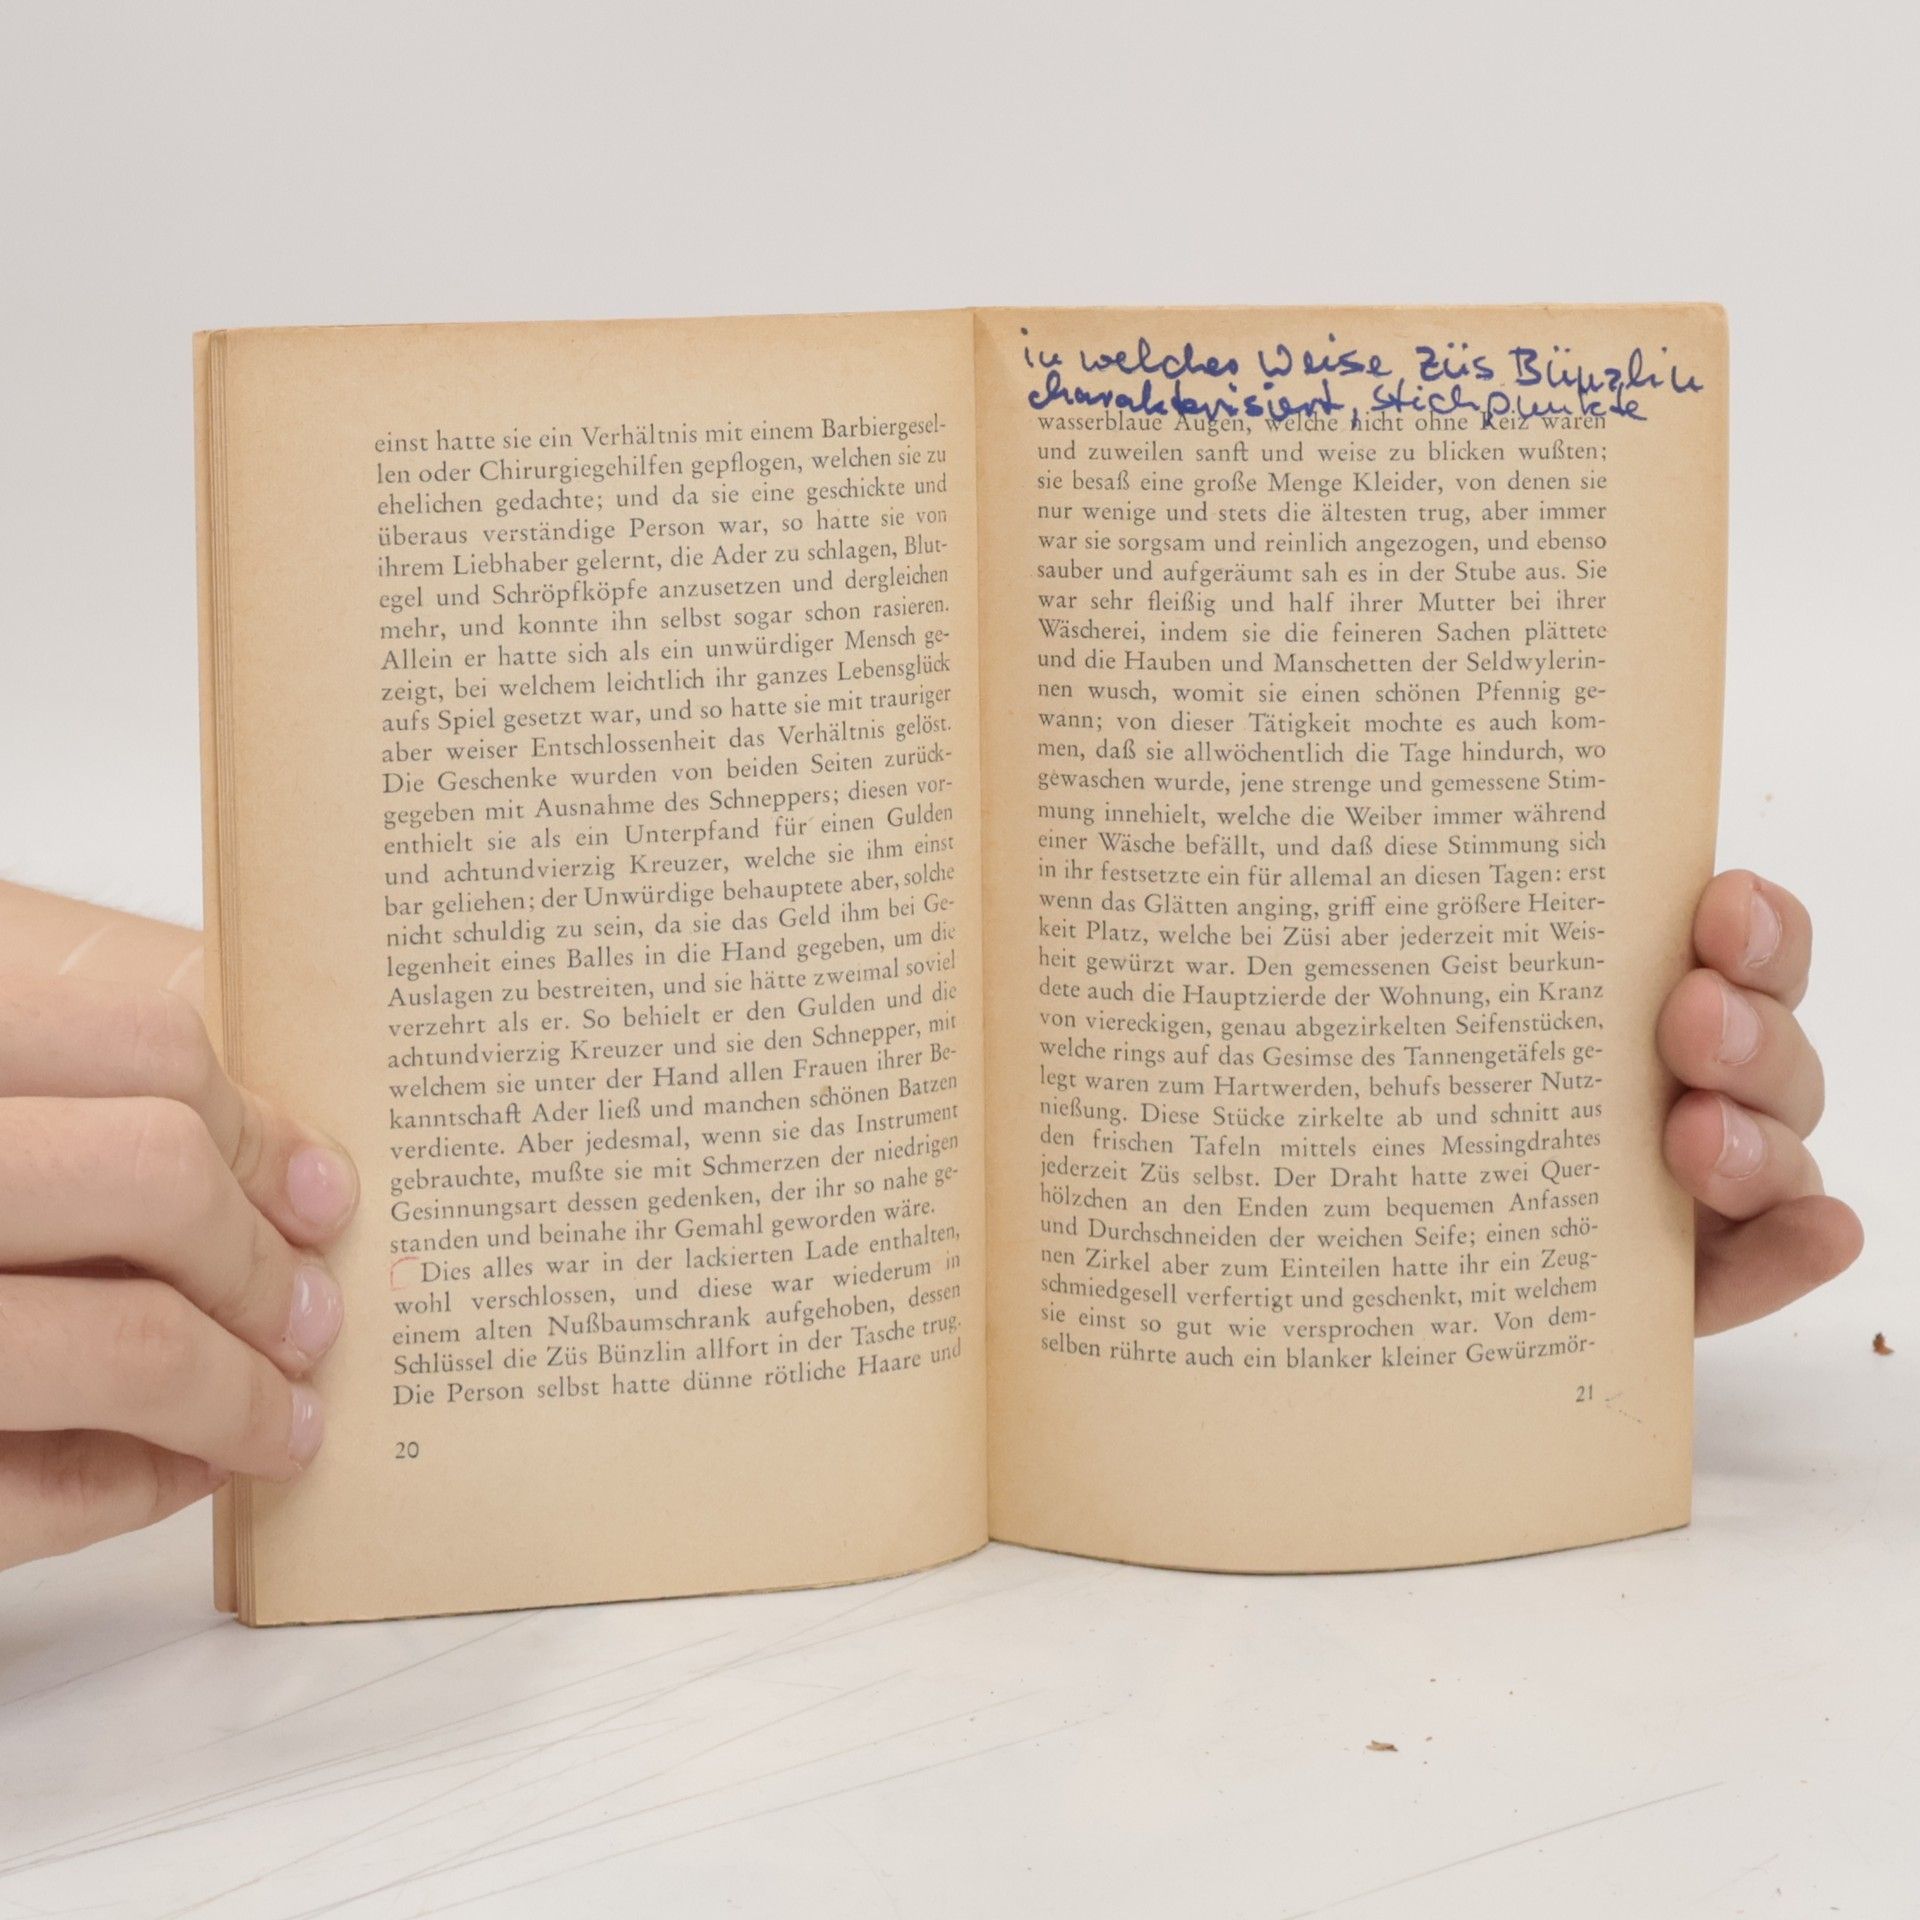 einst hatte sie ein Verhältnis mit einem Barbiergesel-
len oder Chirurgiegehilfen gepflogen, welchen sie zu
ehelichen gedachte; und da sie eine geschickte und
überaus verständige Person war, so hatte sie von
ihrem Liebhaber gelernt, die Ader zu schlagen, Blut-
egel und Schröpfköpfe anzusetzen und dergleichen
mehr, und konnte ihn selbst sogar schon rasieren.
Allein er hatte sich als ein unwürdiger Mensch ge-
zeigt, bei welchem leichtlich ihr ganzes Lebensglück
aufs Spiel gesetzt war, und so hatte sie mit trauriger
aber weiser Entschlossenheit das Verhältnis gelöst.
Die Geschenke wurden von beiden Seiten zurück-
gegeben mit Ausnahme des Schneppers; diesen vor-
enthielt sie als ein Unterpfand für einen Gulden
und achtundvierzig Kreuzer, welche sie ihm einst
bar geliehen; der Unwürdige behauptete aber, solche
nicht schuldig zu sein, da sie das Geld ihm bei Ge-
legenheit eines Balles in die Hand gegeben, um die
Auslagen zu bestreiten, und sie hätte zweimal soviel
verzehrt als er. So behielt er den Gulden und die
achtundvierzig Kreuzer und sie den Schnepper, mit
welchem sie unter der Hand allen Frauen ihrer Be-
kanntschaft Ader ließ und manchen schönen Batzen
verdiente. Aber jedesmal, wenn sie das Instrument
gebrauchte, mußte sie mit Schmerzen der niedrigen
Gesinnungsart dessen gedenken, der ihr so nahe ge-
standen und beinahe ihr Gemahl geworden wäre.
Dies alles war in der lackierten Lade enthalten,
wohl verschlossen, und diese war wiederum in
einem alten Nußbaumschrank aufgehoben, dessen
Schlüssel die Züs Bünzlin allfort in der Tasche trug.
Die Person selbst hatte dünne rötliche Haare und
20
in welcher Weise Züs Bünzlin
charakterisiert, Stichpunkte
wasserblaue Augen, welche nicht ohne Reiz waren
und zuweilen sanft und weise zu blicken wußten;
sie besaß eine große Menge Kleider, von denen sie
nur wenige und stets die ältesten trug, aber immer
war sie sorgsam und reinlich angezogen, und ebenso
sauber und aufgeräumt sah es in der Stube aus. Sie
war sehr fleißig und half ihrer Mutter bei ihrer
Wäscherei, indem sie die feineren Sachen plättete
und die Hauben und Manschetten der Seldwylerin-
nen wusch, womit sie einen schönen Pfennig ge-
wann; von dieser Tätigkeit mochte es auch kom-
men, daß sie allwöchentlich die Tage hindurch, wo
gewaschen wurde, jene strenge und gemessene Stim-
mung innehielt, welche die Weiber immer während
einer Wäsche befällt, und daß diese Stimmung sich
in ihr festsetzte ein für allemal an diesen Tagen: erst
wenn das Glätten anging, griff eine größere Heiter-
keit Platz, welche bei Züsi aber jederzeit mit Weis-
heit gewürzt war. Den gemessenen Geist beurkun-
dete auch die Hauptzierde der Wohnung, ein Kranz
von viereckigen, genau abgezirkelten Seifenstücken,
welche rings auf das Gesimse des Tannengetäfels ge-
legt waren zum Hartwerden, behufs besserer Nutz-
nießung. Diese Stücke zirkelte ab und schnitt aus
den frischen Tafeln mittels eines Messingdrahtes
jederzeit Züs selbst. Der Draht hatte zwei Quer-
hölzchen an den Enden zum bequemen Anfassen
und Durchschneiden der weichen Seife; einen schö-
nen Zirkel aber zum Einteilen hatte ihr ein Zeug-
schmiedgesell verfertigt und geschenkt, mit welchem
sie einst so gut wie versprochen war. Von dem-
selben rührte auch ein blanker kleiner Gewürzmör-
21